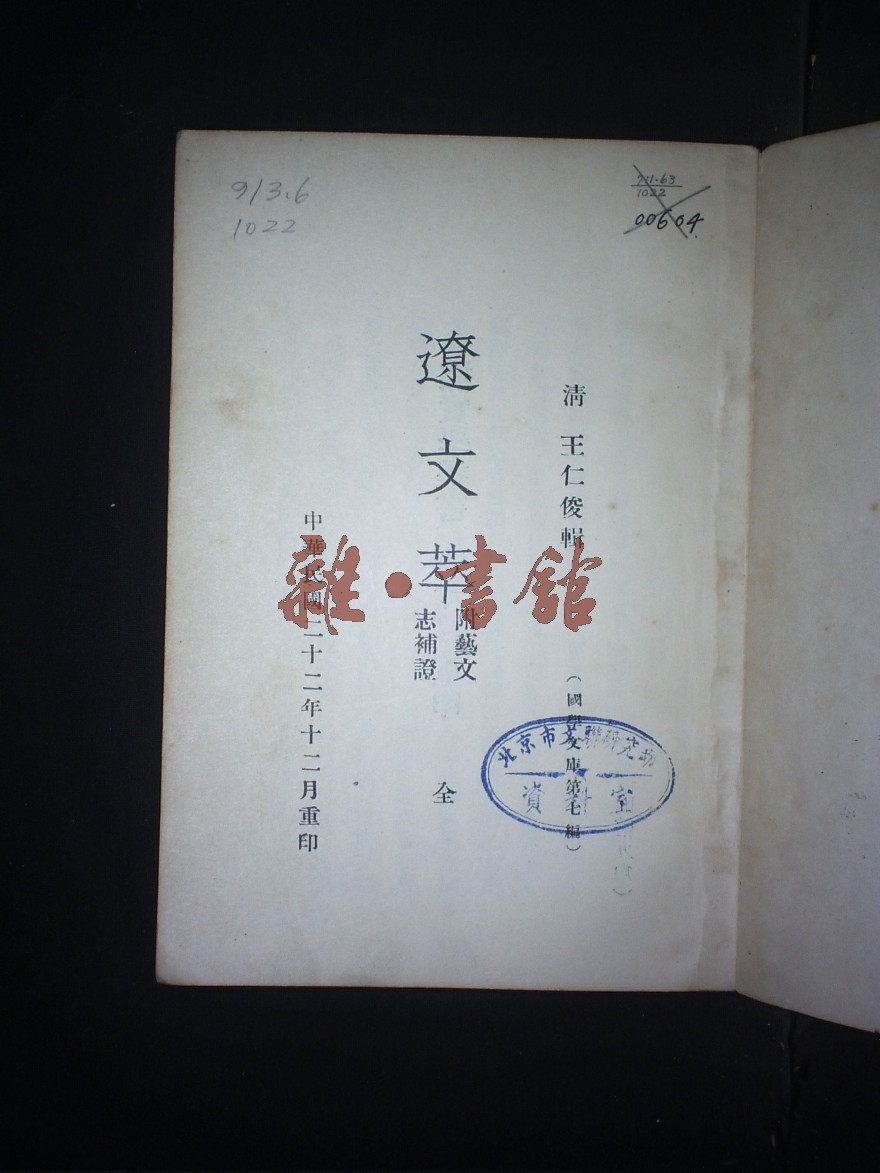 913.6
1022
00604
清 王仁俊輯
(國學文庫第七編)
遼文萃
附藝文
志補證
全
中華民國二十二年十二月重印
雜·書館
北京市文聯研究部
資料室